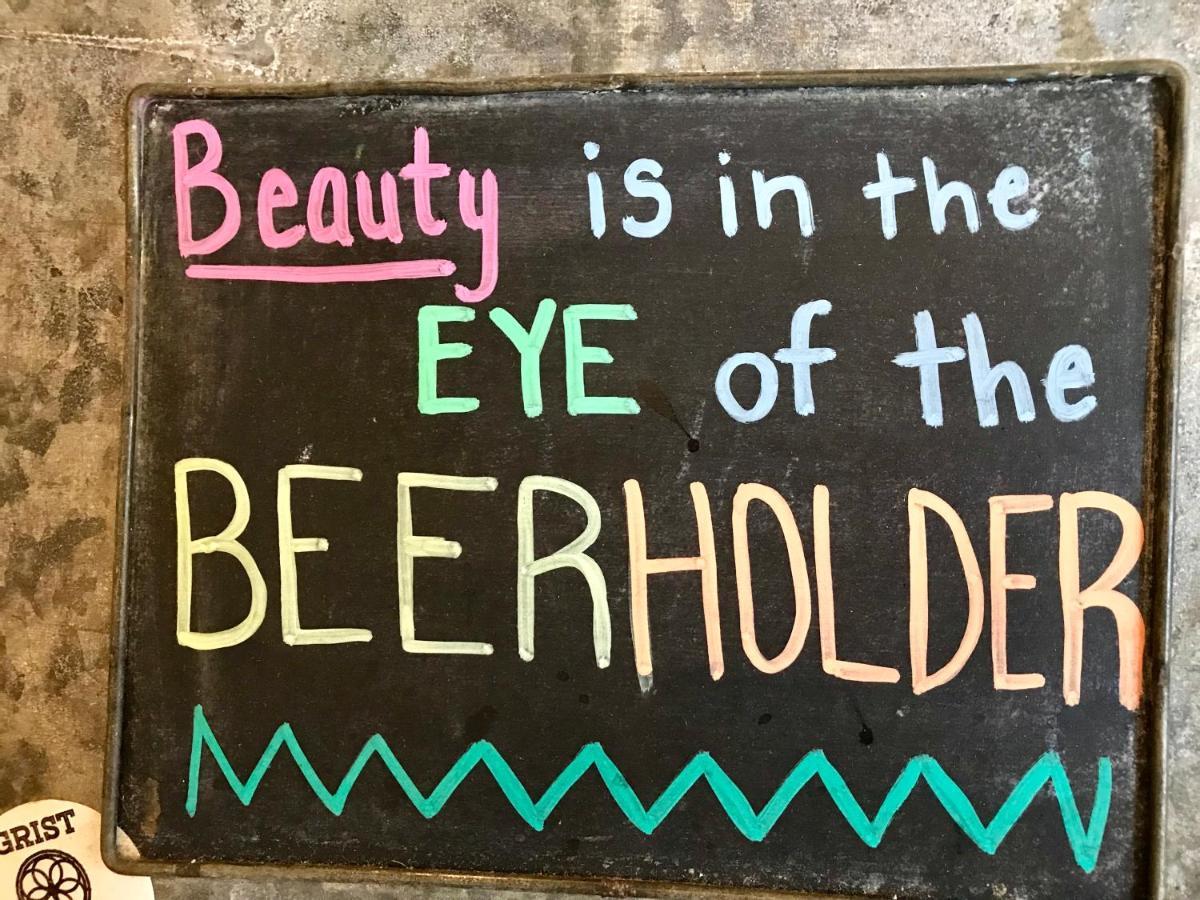 Beauty is in the
EYE of the
BEERHOLDER
GRIST